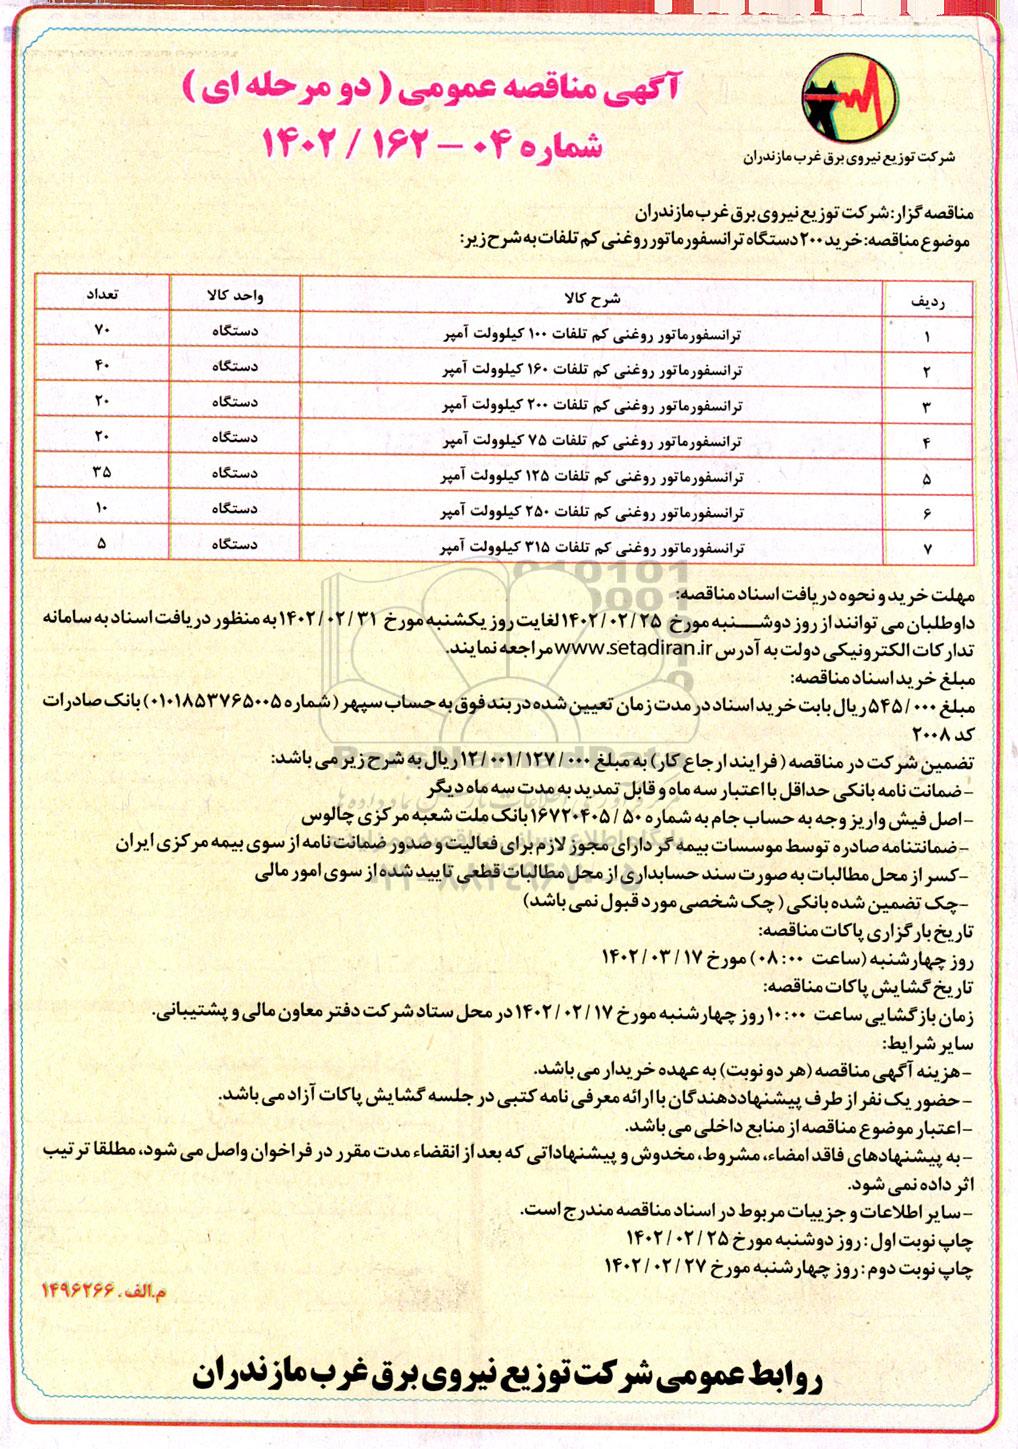 آگهی مناقصه عمومی ( دو مرحله ای )
شماره ۰۴ – ۱۶۲ / ۱۴۰۲
شرکت توزیع نیروی برق غرب مازندران
مناقصه گزار: شرکت توزیع نیروی برق غرب مازندران
موضوع مناقصه: خرید ۲۰۰ دستگاه ترانسفورماتور روغنی کم تلفات به شرح زیر:
ردیف شرح کالا واحد کالا تعداد
۱ ترانسفورماتور روغنی کم تلفات ۱۰۰ کیلوولت آمپر دستگاه ۷۰
۲ ترانسفورماتور روغنی کم تلفات ۱۶۰ کیلوولت آمپر دستگاه ۴۰
۳ ترانسفورماتور روغنی کم تلفات ۲۰۰ کیلوولت آمپر دستگاه ۲۰
۴ ترانسفورماتور روغنی کم تلفات ۷۵ کیلوولت آمپر دستگاه ۲۰
۵ ترانسفورماتور روغنی کم تلفات ۱۲۵ کیلوولت آمپر دستگاه ۳۵
۶ ترانسفورماتور روغنی کم تلفات ۲۵۰ کیلوولت آمپر دستگاه ۱۰
۷ ترانسفورماتور روغنی کم تلفات ۳۱۵ کیلوولت آمپر دستگاه ۵
مهلت خرید و نحوه دریافت اسناد مناقصه:
داوطلبان می توانند از روز دوشنبه مورخ ۱۴۰۲/۰۲/۲۵ لغایت روز یکشنبه مورخ ۱۴۰۲/۰۲/۳۱ به منظور دریافت اسناد به سامانه
تدارکات الکترونیکی دولت به آدرس www.setadiran.ir مراجعه نمایند.
مبلغ خرید اسناد مناقصه:
مبلغ ۵۴۵/۰۰۰ ریال بابت خرید اسناد در مدت زمان تعیین شده در بند فوق به حساب سپهر ( شماره ۰۱۰۱۸۵۳۷۶۵۰۰۵) بانک صادرات
کد ۲۰۰۸
تضمین شرکت در مناقصه ( فرایند ارجاع کار) به مبلغ ۱۲/۰۰۱/۱۲۷/۰۰۰ ریال به شرح زیر می باشد:
-ضمانت نامه بانکی حداقل با اعتبار سه ماه و قابل تمدید به مدت سه ماه دیگر
-اصل فیش واریز وجه به حساب جام به شماره ۱۶۷۲۰۴۰۵/۵۰ بانک ملت شعبه مرکزی چالوس
-ضمانتنامه صادره توسط موسسات بیمه گر دارای مجوز لازم برای فعالیت و صدور ضمانت نامه از سوی بیمه مرکزی ایران
-کسر از محل مطالبات به صورت سند حسابداری از محل مطالبات قطعی تایید شده از سوی امور مالی
-چک تضمین شده بانکی ( چک شخصی مورد قبول نمی باشد)
تاریخ بارگزاری پاکات مناقصه:
روز چهارشنبه (ساعت ۰۸:۰۰) مورخ ۱۴۰۲/۰۳/۱۷
تاریخ گشایش پاکات مناقصه:
زمان بازگشایی ساعت ۱۰:۰۰ روز چهارشنبه مورخ ۱۴۰۲/۰۲/۱۷ در محل ستاد شرکت دفتر معاون مالی و پشتیبانی.
سایر شرایط:
-هزینه آگهی مناقصه (هر دو نوبت) به عهده خریدار می باشد.
-حضور یک نفر از طرف پیشنهاددهندگان با ارائه معرفی نامه کتبی در جلسه گشایش پاکات آزاد می باشد.
-اعتبار موضوع مناقصه از منابع داخلی می باشد.
-به پیشنهادهای فاقد امضاء، مشروط، مخدوش و پیشنهاداتی که بعد از انقضاء مدت مقرر در فراخوان واصل می شود، مطلقا ترتیب
اثر داده نمی شود.
-سایر اطلاعات و جزییات مربوط در اسناد مناقصه مندرج است.
چاپ نوبت اول : روز دوشنبه مورخ ۱۴۰۲/۰۲/۲۵
چاپ نوبت دوم : روز چهارشنبه مورخ ۱۴۰۲/۰۲/۲۷
م.الف. ۱۴۹۶۲۶۶
روابط عمومی شرکت توزیع نیروی برق غرب مازندران